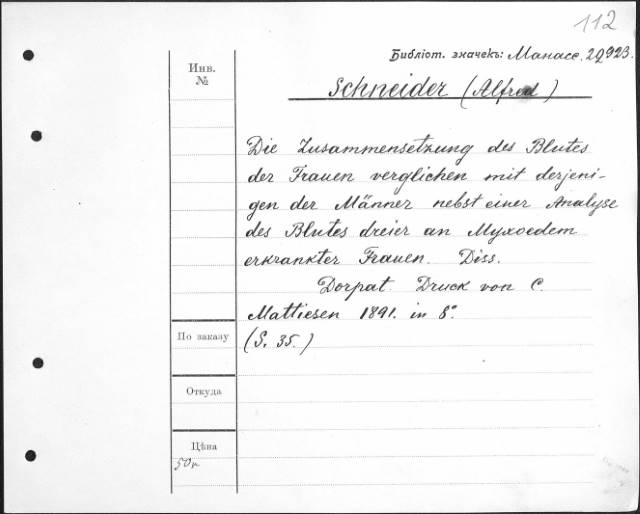 112
Библіот. значекъ: Манасс. 29923.
Инв.
№
Schneider (Alfred)
Die Zusammensetzung des Blutes
der Frauen verglichen mit derjeni-
gen der Männer nebst einer Analyse
des Blutes dreier an Myxoedem
erkrankter Frauen. Diss.
Dorpat. Druck von C.
Mattiesen 1891. in 8°.
По заказу
(S. 35.)
Откуда
Цѣна
50к